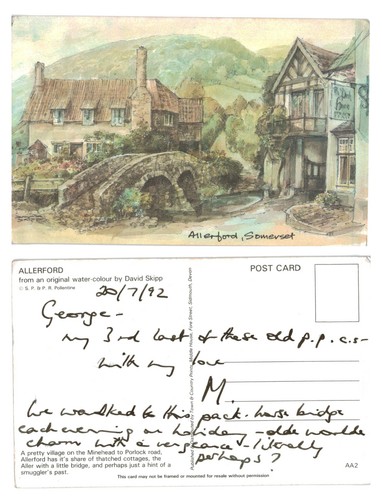 Allerford, Somerset
ALLERFORD
from an original water-colour by David Skipp
© S. P. & P. R. Pallentine
POST CARD
20/7/92
George -
my 3rd last of these old p.p.c.s -
with my love
M.
We walked to this pack-horse bridge
each evening on holiday - olde worlde
charm with a vengeance - literally
perhaps?
A pretty village on the Minehead to Porlock road,
Allerford has it's share of thatched cottages, the
Aller with a little bridge, and perhaps just a hint of a
smuggler's past.
AA2
This card may not be framed or mounted for resale without permission